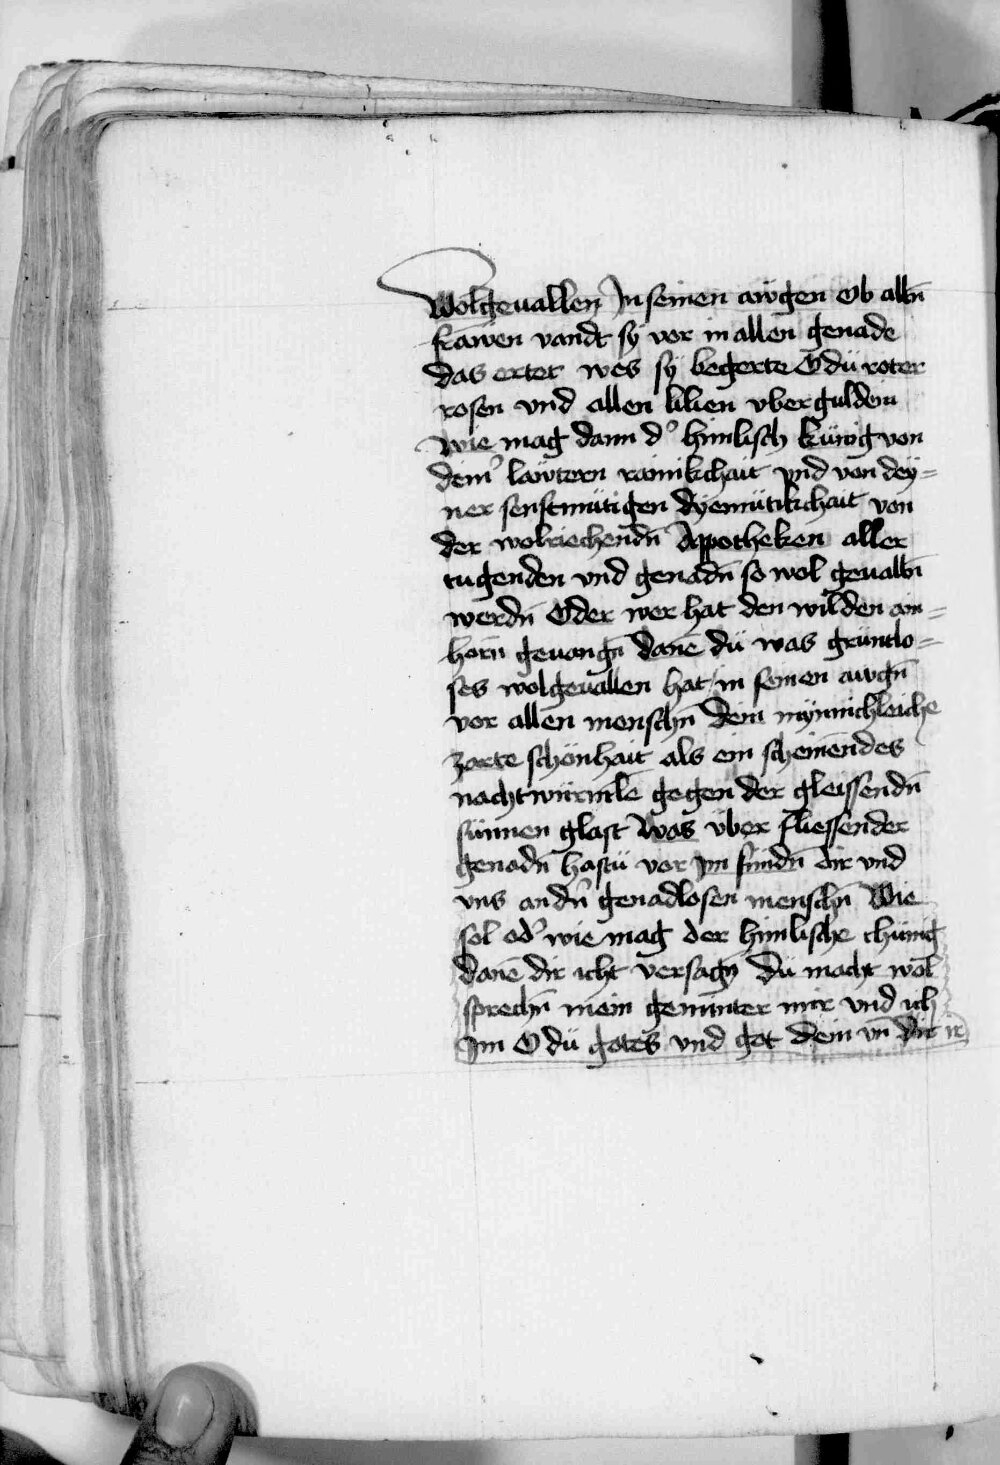 Wolgeuallen In seinen awgen Ob alln̄
frawen vandt sÿ vor in allen genade
das ertet wes sÿ begerte O dü roter
rosen vnd allen lilien vber guldein
wie mag dann d' himlisch künig von
deinr̄ lawtern rainikchait vnd von deÿ=
ner senftmütigen dÿemütikchait von
der wolriechendn̄ Appotheken aller
tugenden vnd genadn̄ so wol geualln̄
werdn̄ Oder wer hat den wilden ain=
horn̄ geuangn̄ dane dü was gruntlo=
ses wolgeuallen hat in seinen awgn̄
vor allen menschn̄ dein mÿnnichleiche
zarte schönhait als ein scheinendes
nachtwürmle gegen der gleissendn̄
sünnen glast Was über fliessender
genadn̄ hastü vor im fündn̄ dir vnd
vns andn̄ genadlosen menschn̄ Wie
sol od' wie mag der himlische chünig
dane dir icht versagn̄ Dü macht wol
sprechn̄ mein gemünter mir vnd ich
Im O dü gotes vnd got dein vn̄ dir ir